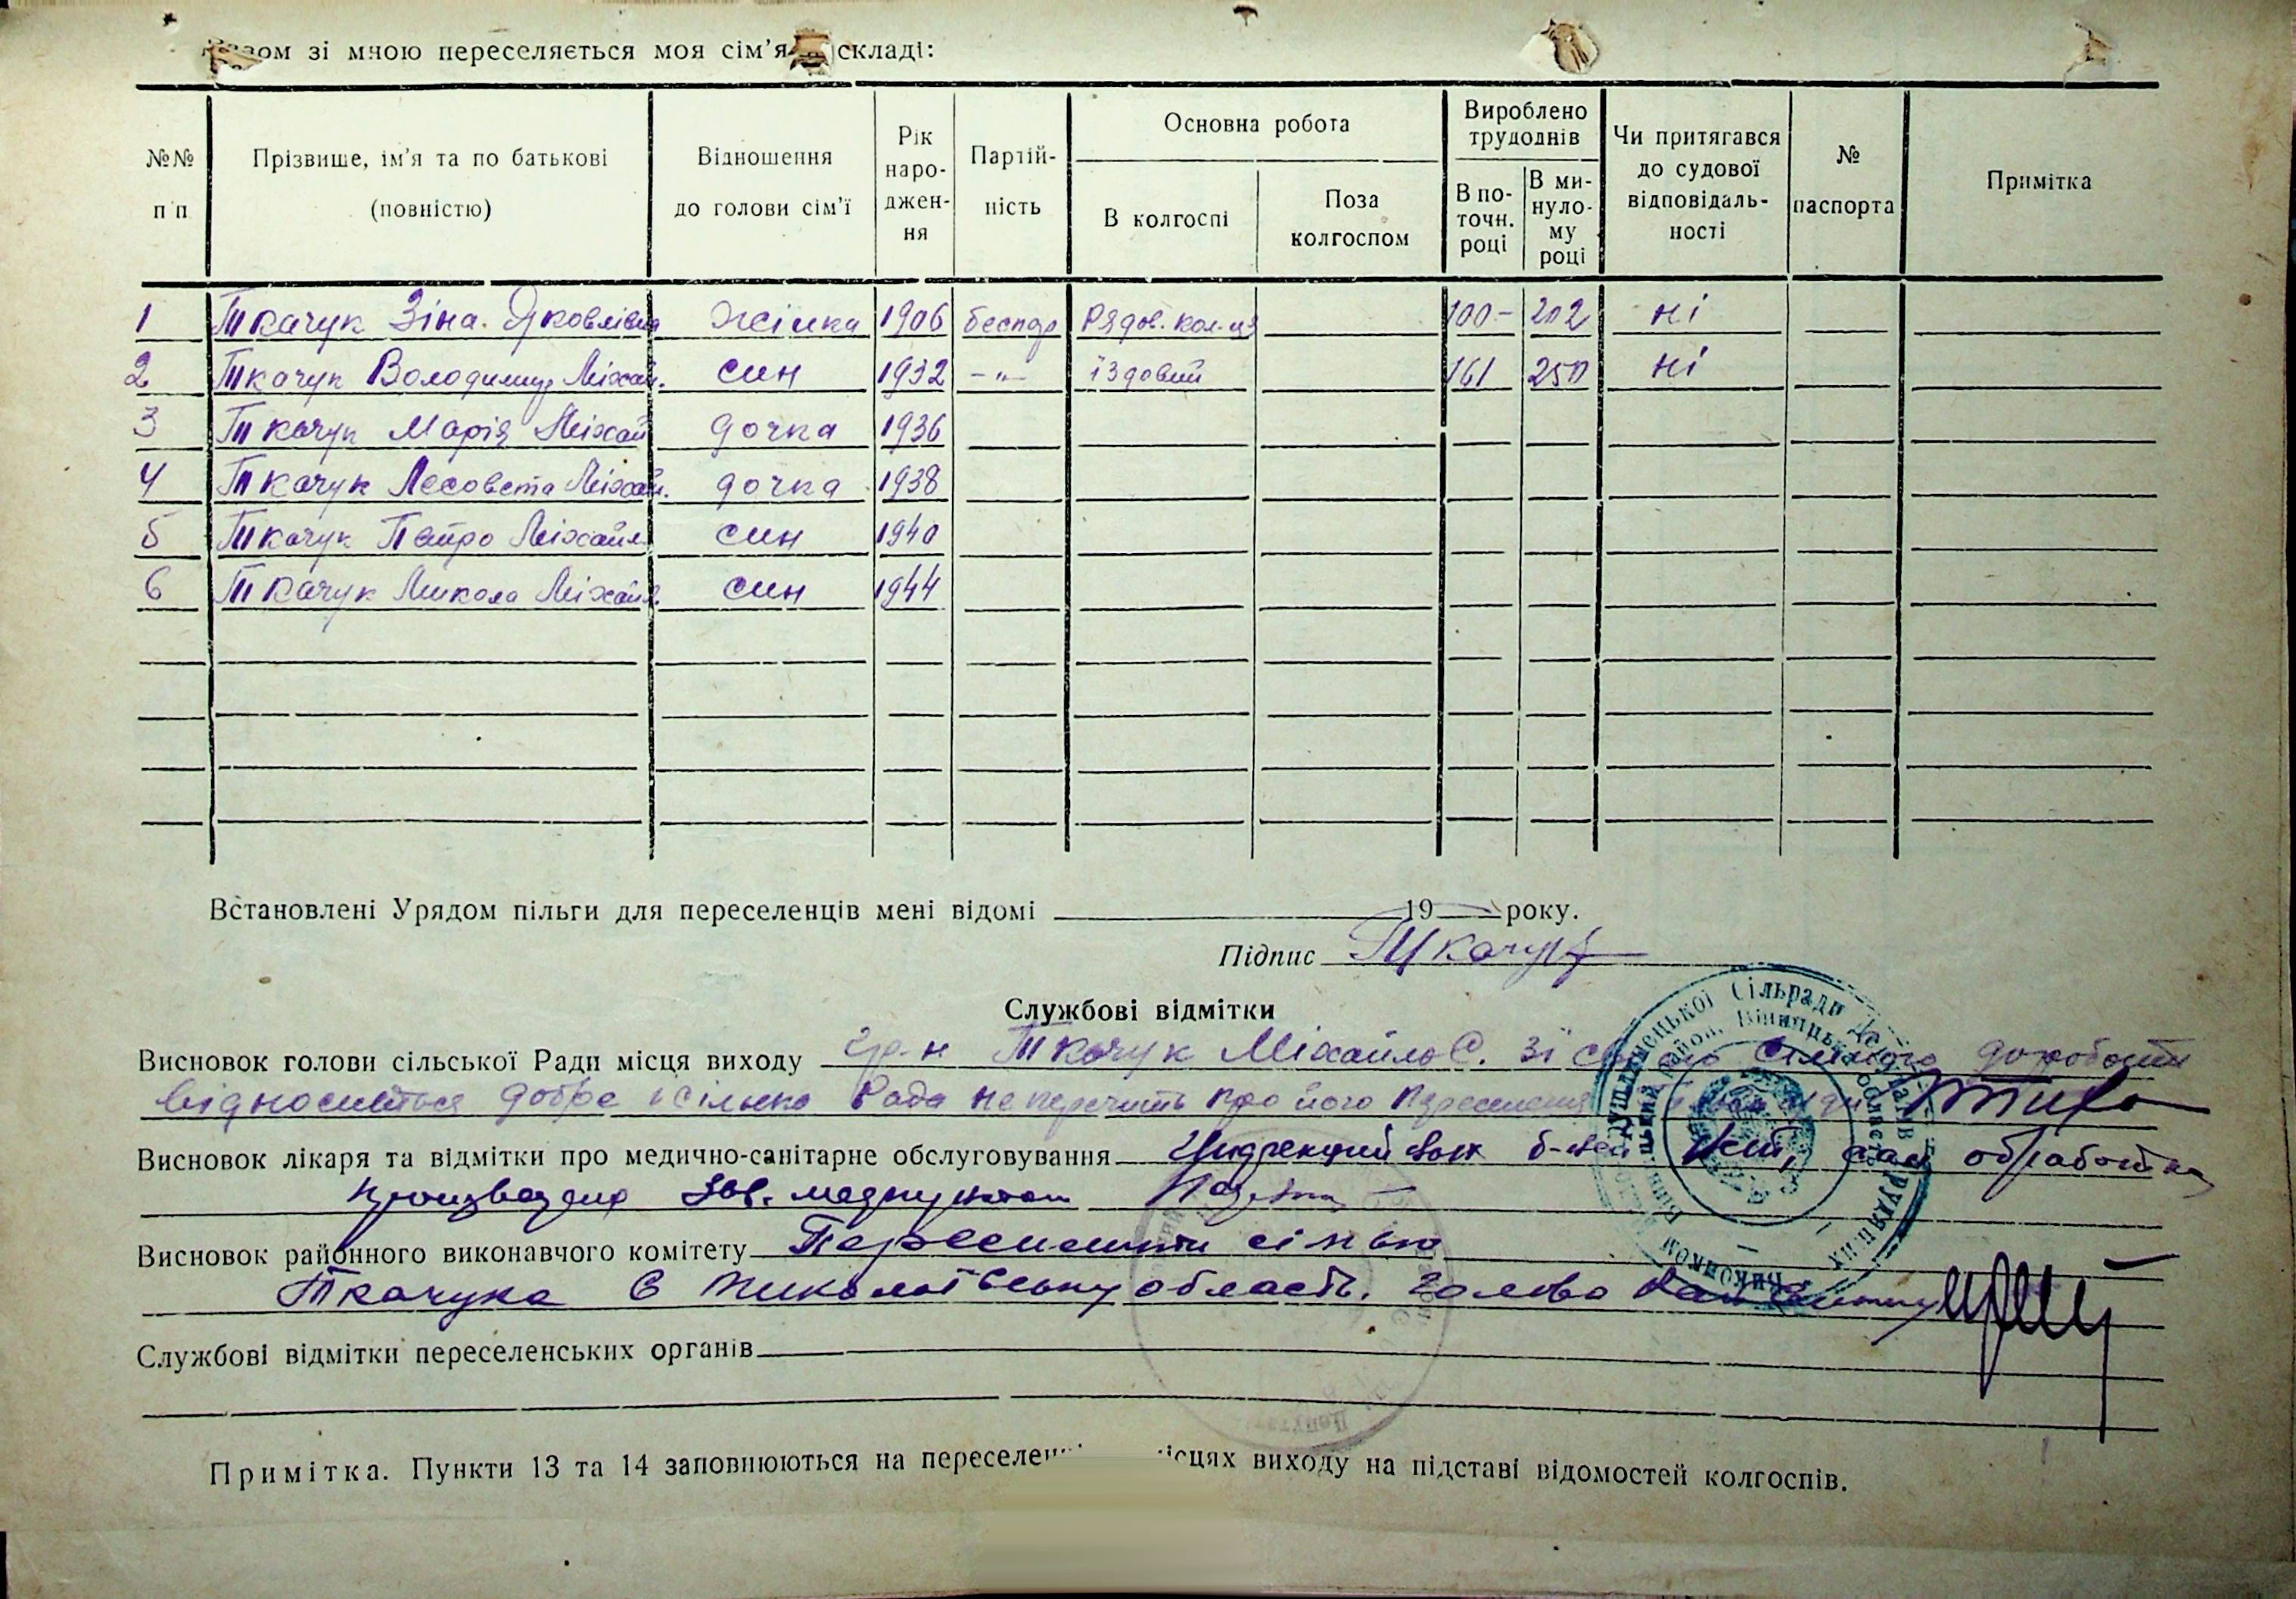 Разом зі мною переселяється моя сім'я складі:
№№ п п
Прізвище, ім'я та по батькові (повністю)
Відношення до голови сім'ї
Рік народження
Партійність
Основна робота
В колгоспі
Поза колгоспом
Вироблено трудоднів
В поточн. році
В минулому році
Чи притягався до судової відповідальності
№ паспорта
Примітка
1 Ткачук Зіна Яковлівна жінка 1906 беспар Рядов. кол-ця 100- 202 ні
2 Ткачук Володимир Міхай. син 1932 -"- їздовий 161 250 ні
3 Ткачук Марія Міхай дочка 1936
4 Ткачук Лесовета Міхай. дочка 1938
5 Ткачук Петро Міхайл син 1940
6 Ткачук Микола Міхайл. син 1944
Встановлені Урядом пільги для переселенців мені відомі 19 року.
Підпис Ткачук
Службові відмітки
Висновок голови сільської Ради місця виходу гр-н Ткачук Міхайло С. зі до роботи
відноситься добре сільська Рада не перечить про його переселення
Висновок лікаря та відмітки про медично-санітарне обслуговування б-ней нет, сан обработка
произведена Зав. медпунктом
Висновок районного виконавчого комітету Переселити сім'ю
Ткачука в Миколаївську область. Голова
Службові відмітки переселенських органів
Примітка. Пункти 13 та 14 заповнюються на переселен ісцях виходу на підставі відомостей колгоспів.